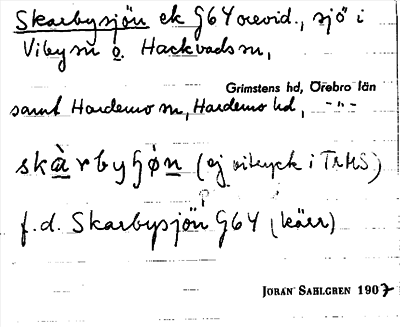 Skarbysjön ek G64 orevid., sjö i
Viby sn o. Hackvads sn,
Grimstens hd, Örebro län
samt Hardemo sn, Hardemo hd, -"-
skàrbyʃøn (ej vitryck i TrHS.)
f.d. Skarbysjön G64 (kärr)
JÖRAN SAHLGREN 1907